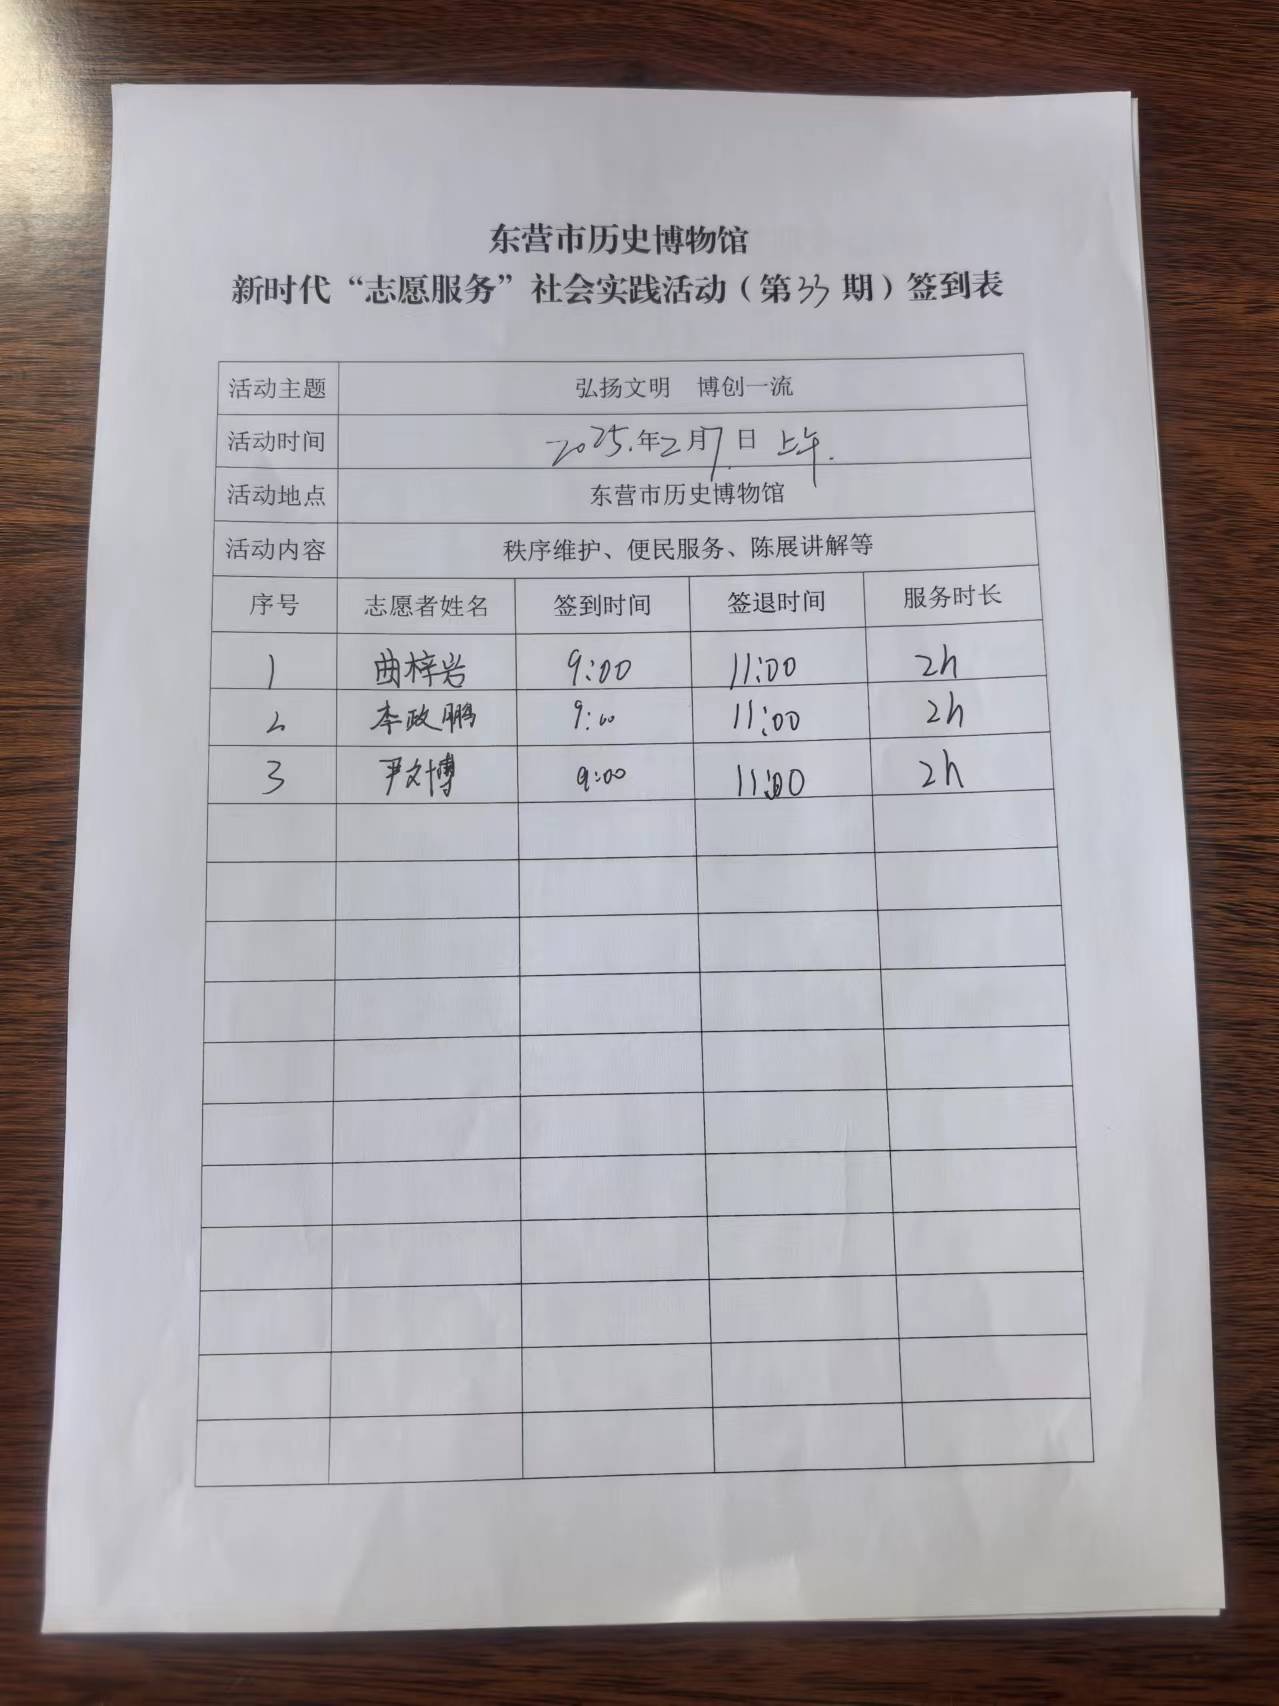 东营市历史博物馆
新时代“志愿服务”社会实践活动（第33期）签到表
活动主题 弘扬文明 博创一流
活动时间 2025.年2月7日 上午.
活动地点 东营市历史博物馆
活动内容 秩序维护、便民服务、陈展讲解等
序号 志愿者姓名 签到时间 签退时间 服务时长
1 曲梓岩 9:00 11:00 2h
2 李政鹏 9:00 11:00 2h
3 尹文博 9:00 11:00 2h